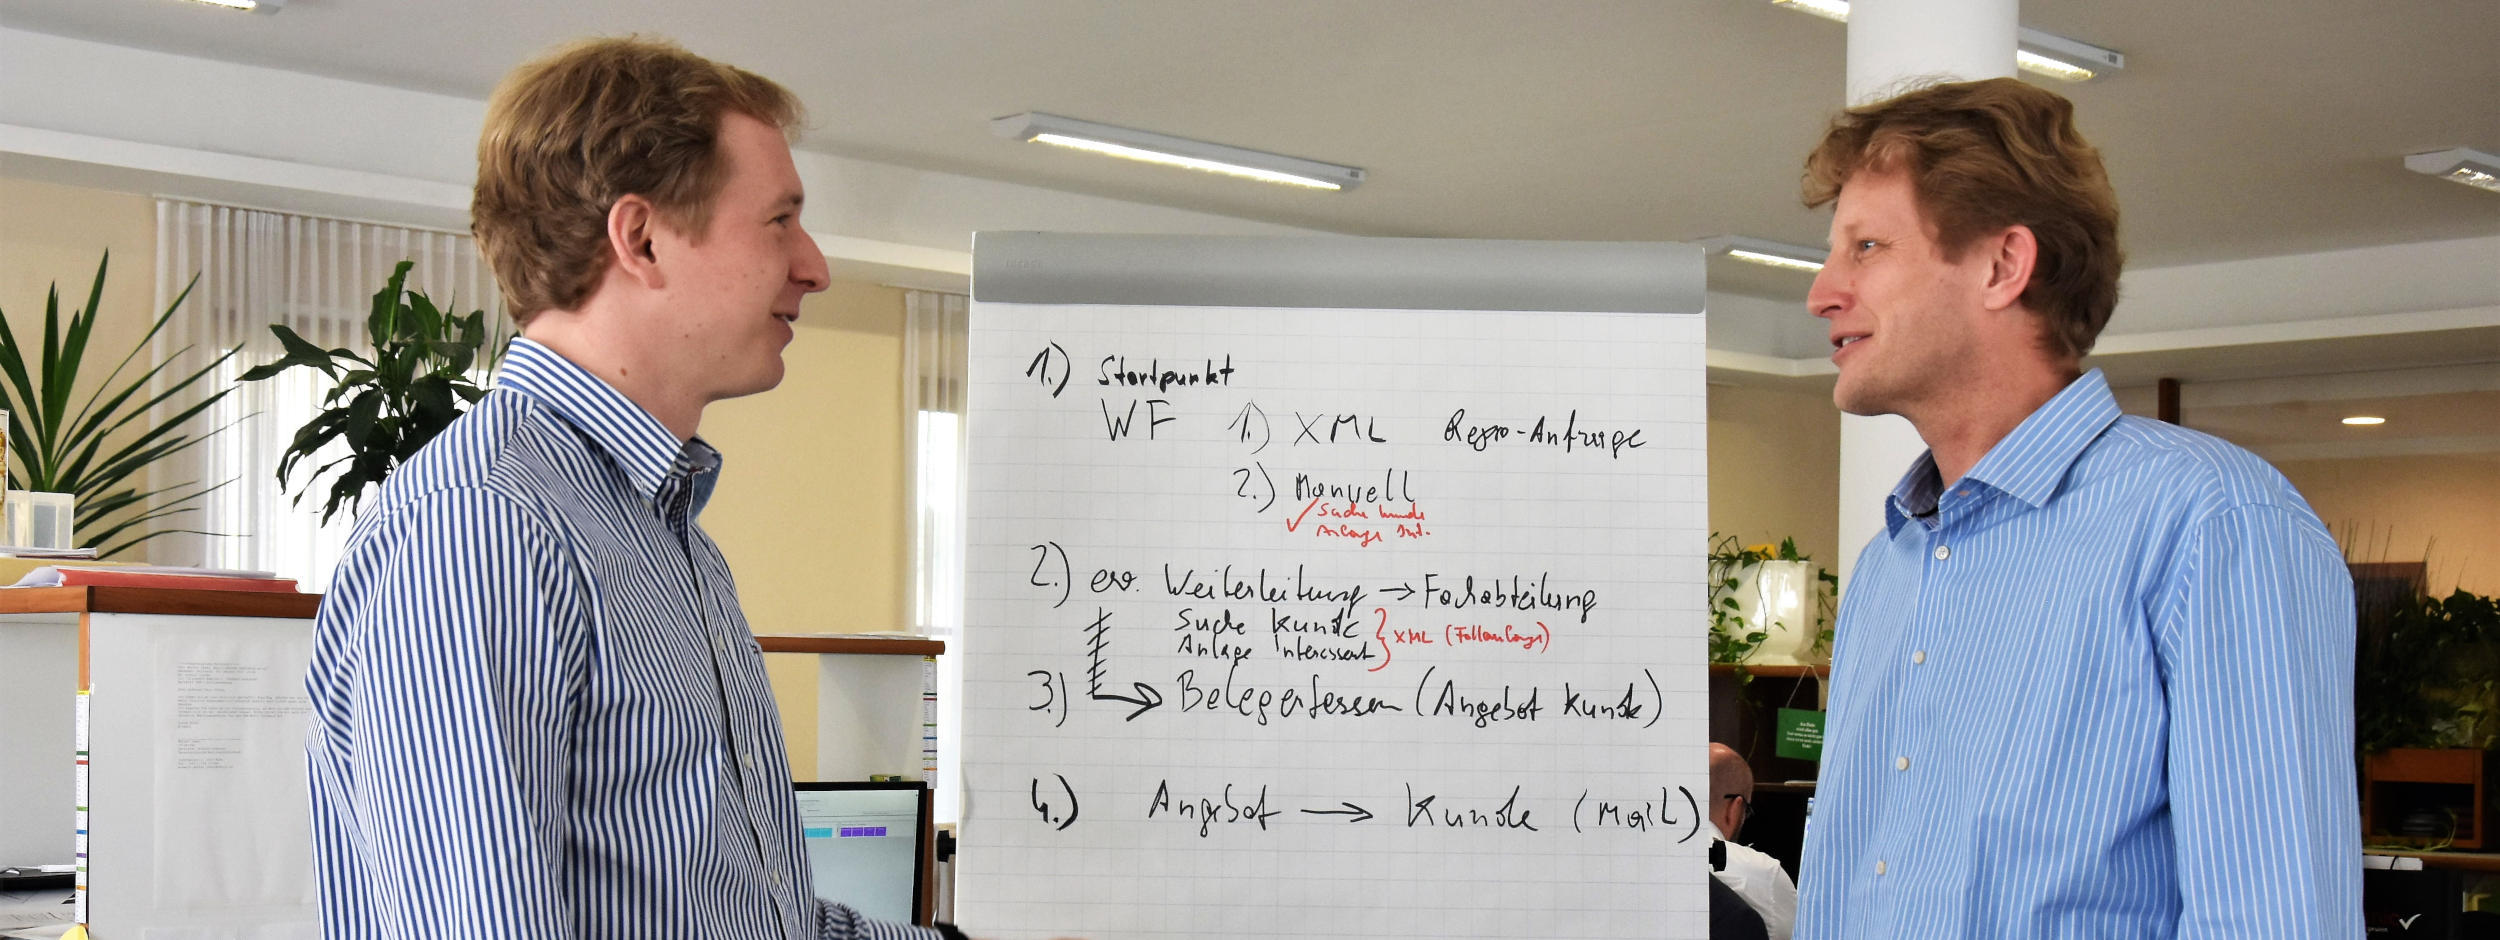 1.) Startpunkt
WF 1.) XML Repro-Anfrage
2.) Manuell
✓ Suche Kunde
Anlage Int.
2.) ev. Weiterleitung → Fachabteilung
Suche Kunde
Anlage Interessent } XML (Fallanlage)
3.) → Belegerfassen (Angebot Kunde)
4.) Angebot → Kunde (Mail)